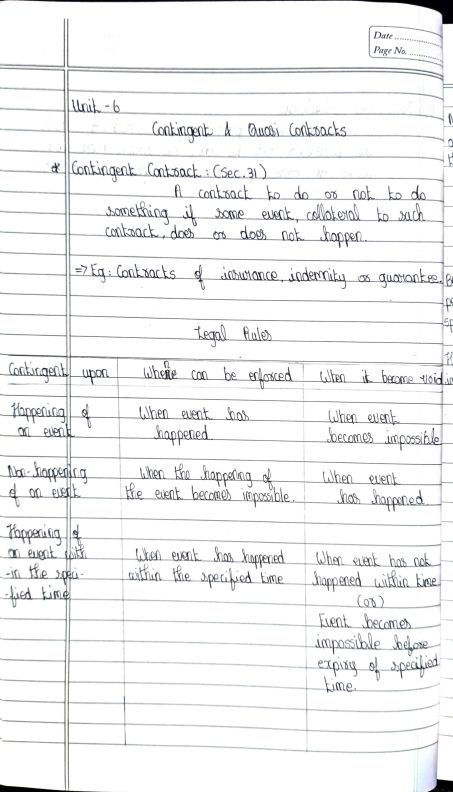 Date
Page No.
Unit - 6
Contingent & Quasi Contracts
* Contingent Contract : (Sec. 31)
A contract to do or not to do
something if some event, collateral to such
contract, does or does not happen.
=> Eg : Contracts of insurance, indemnity or guarantee.
Legal Rules
Contingent upon
When can be enforced
When it become void
Happening of
an event
When event has
happened.
When event
becomes impossible
Non-happening
of an event
When the happening of
the event becomes impossible.
When event
has happened.
Happening of
an event with
-in the speci-
-fied time
When event has happened
within the specified time
When event has not
happened within time
(or)
Event becomes
impossible before
expiry of specified
time.